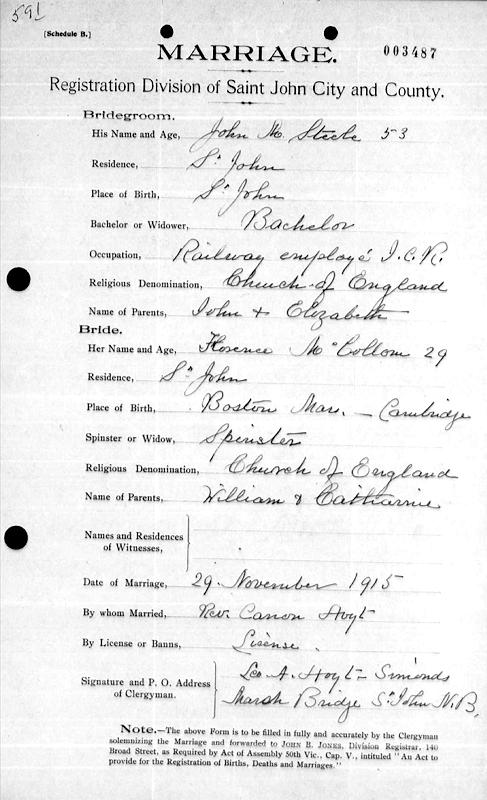 591
[Schedule B.]
MARRIAGE.
003487
Registration Division of Saint John City and County.
Bridegroom.
His Name and Age, John M. Steele 53
Residence, St. John
Place of Birth, St. John
Bachelor or Widower, Bachelor
Occupation, Railway employé I.C.R.
Religious Denomination, Church of England
Name of Parents, John & Elizabeth
Bride.
Her Name and Age, Florence McCollom 29
Residence, St. John
Place of Birth, Boston Mass. — Cambridge
Spinster or Widow, Spinster
Religious Denomination, Church of England
Name of Parents, William & Catharine
Names and Residences
of Witnesses,
Date of Marriage, 29. November 1915
By whom Married, Rev. Canon Hoyt
By License or Banns, Lisense.
Signature and P. O. Address
of Clergyman.
Leo A. Hoyt – Simonds
Marsh Bridge St. John N.B.
Note.—The above Form is to be filled in fully and accurately by the Clergyman
solemnizing the Marriage and forwarded to JOHN B. JONES, Division Registrar, 140
Broad Street, as Required by Act of Assembly 50th Vic., Cap. V., intituled "An Act to
provide for the Registration of Births, Deaths and Marriages."